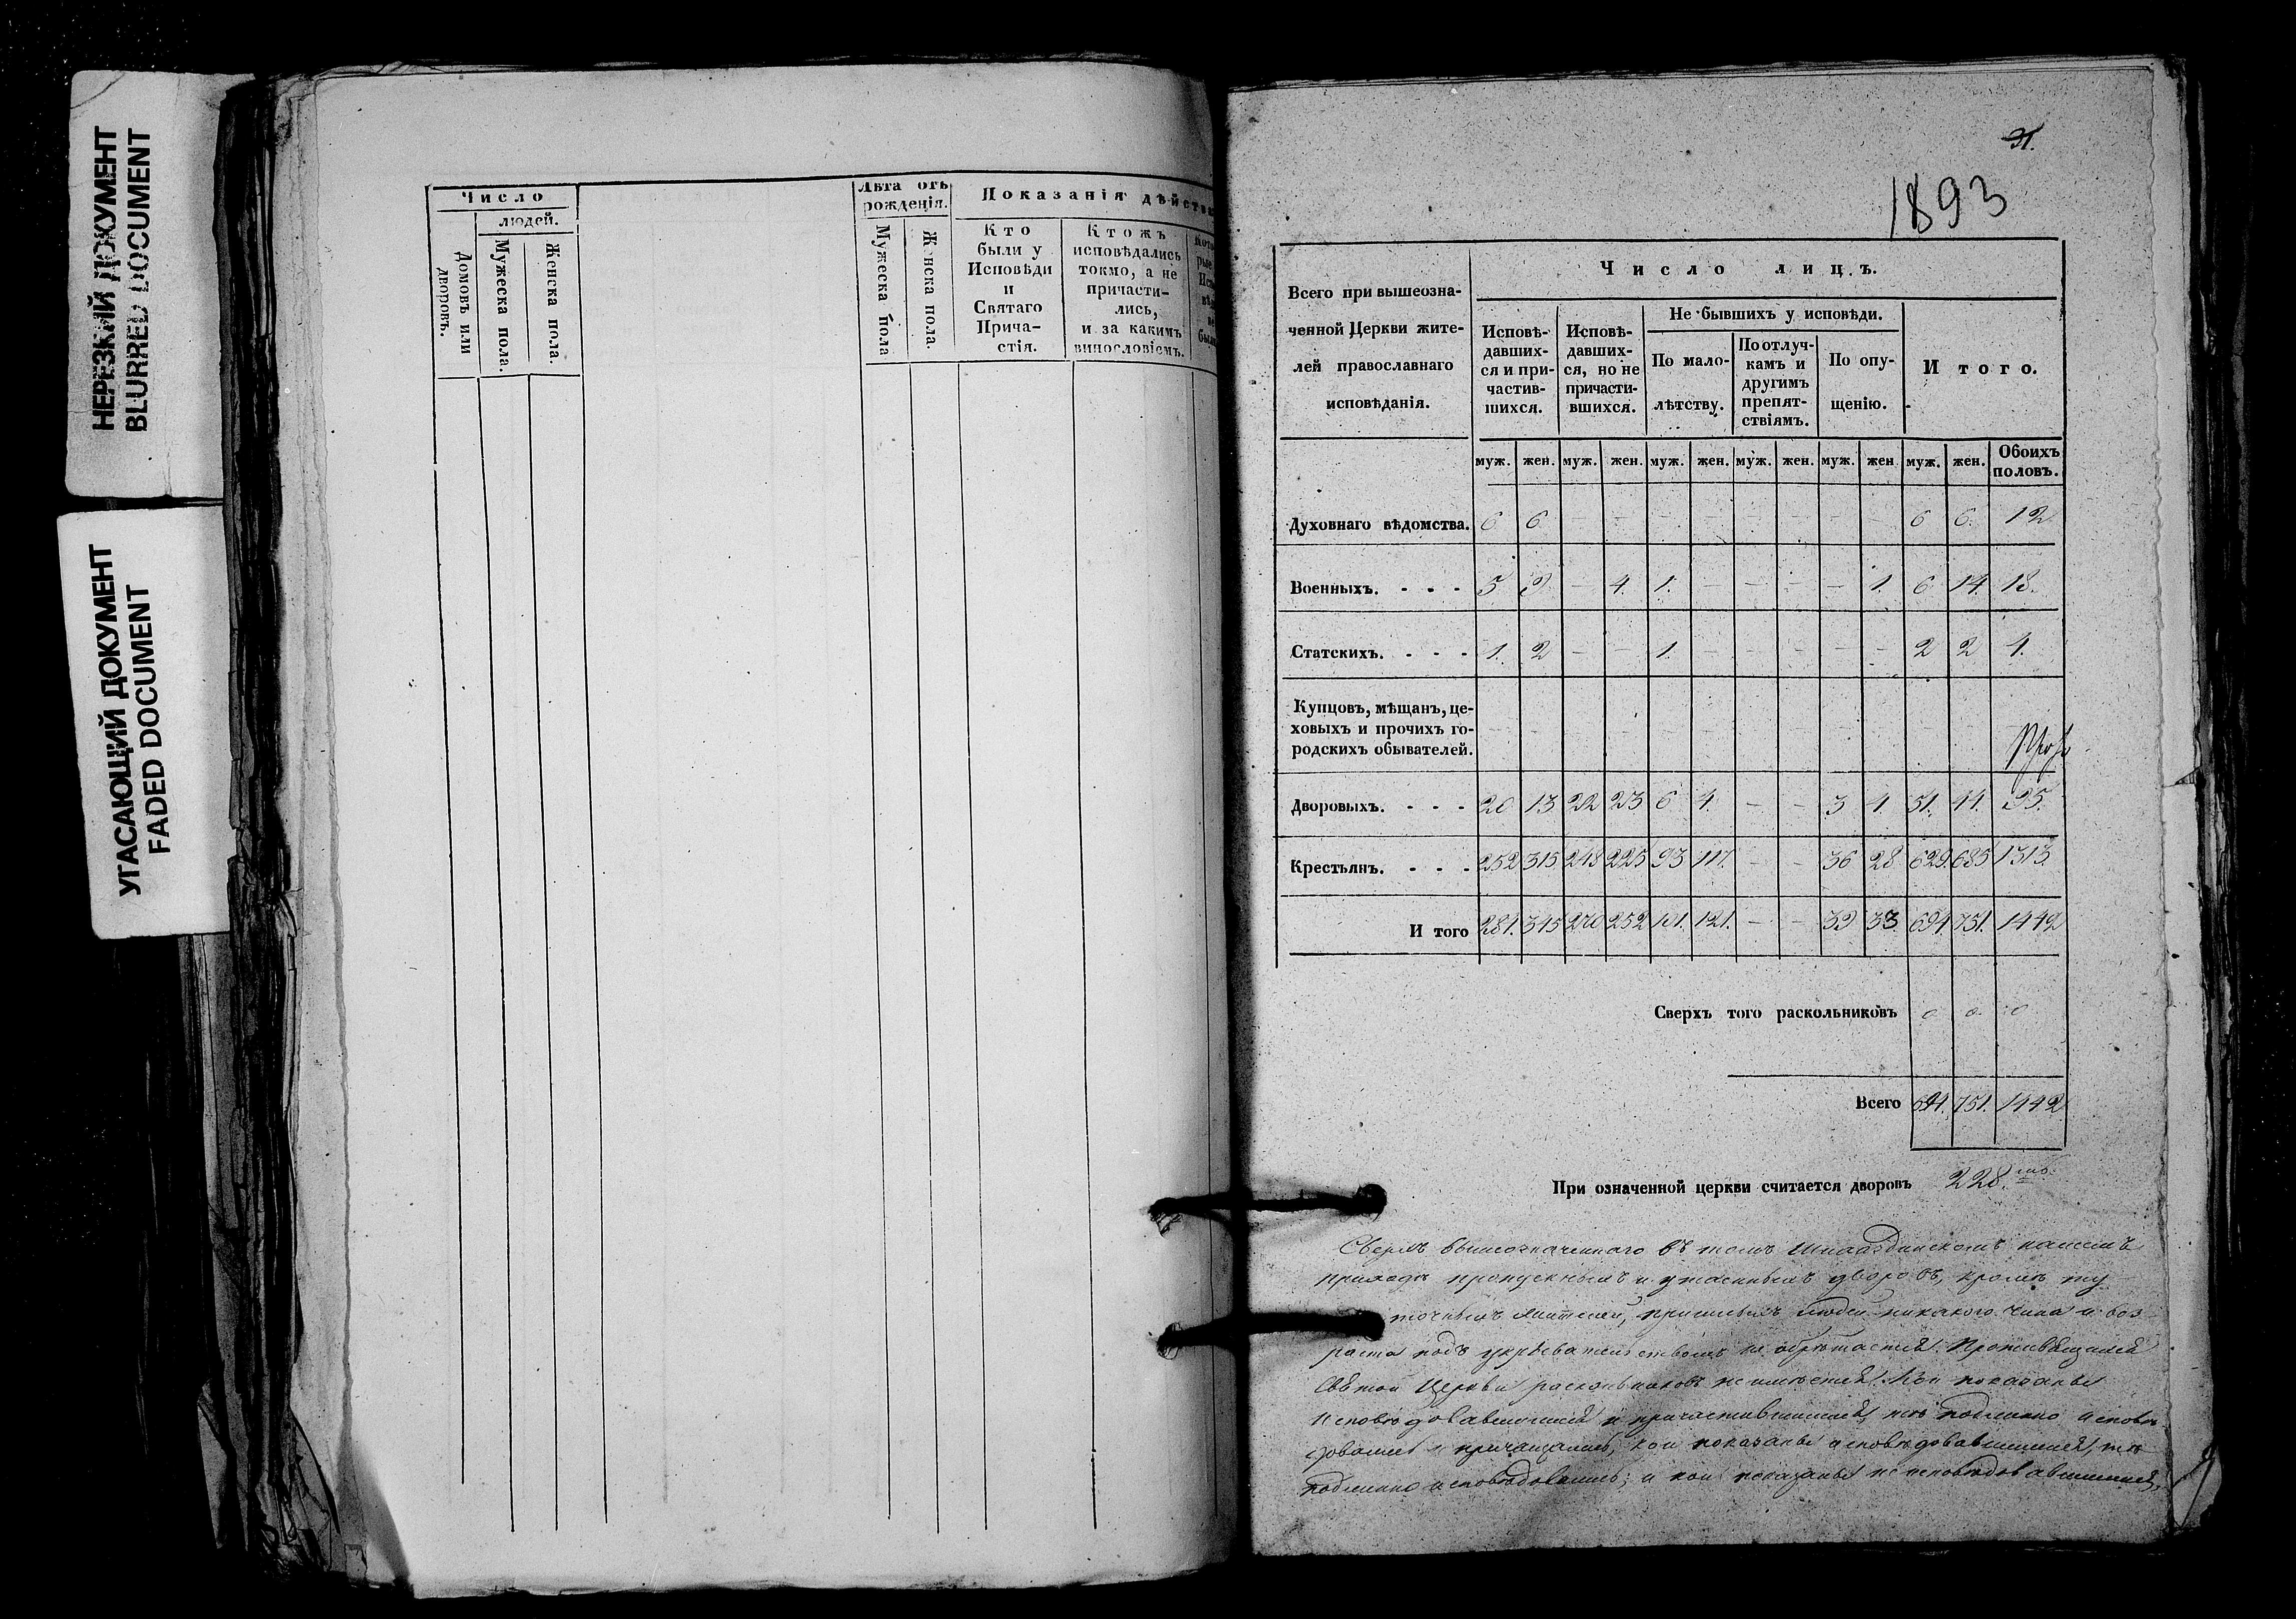 НЕРЕЗКИЙ ДОКУМЕНТ
BLURRED DOCUMENT
УГАСАЮЩИЙ ДОКУМЕНТ
FADED DOCUMENT
Число
людей.
Домовъ или дворовъ.
Мужеска пола.
Женска пола.
Лѣта отъ рожденія.
Мужеска пола
Женска пола.
Показанія дѣйств
Кто
были у
Исповѣди
и
Святаго
Прича-
стія.
Ктожъ
исповѣдались
токмо, а не
причасти-
лись,
и за какимъ
винословіемъ.
31.
1893
Всего при вышеозна-
ченной Церкви жите-
лей православнаго
исповѣданія.
Число лицъ.
Исповѣ-
давших-
ся и при-
частив-
шихся.
Исповѣ-
давших-
ся, но не
причасти-
вшихся.
Не бывшихъ у исповѣди.
По мало-
лѣтству.
По отлуч-
камъ и
другимъ
препят-
ствіямъ.
По опу-
щенію.
Итого.
муж. жен. муж. жен. муж. жен. муж. жен. муж. жен муж. жен. Обоихъ половъ.
Духовнаго вѣдомства. 6 6 – – – – – – – – 6 6. 12
Военныхъ. - - - 5 9 – 4. 1. – – – – 1. 6 14. 18.
Статскихъ. - - - 1. 2 – – 1. – – – – – 2 2 4.
Купцовъ, мѣщанъ, це-
ховыхъ и прочихъ го-
родскихъ обывателей.
Дворовыхъ. - - - 20 13 22 23 6 4. – – 3 4 51. 44. 95.
Крестьянъ. - - - 252 315 248 225 93 117. – – 36 28 629. 685 1313.
И того 284. 345 270 252 101. 121. – – 39 33. 694. 751. 1442
Сверхъ того раскольниковъ 0 0. 0
Всего 694. 751. 1442
При означенной церкви считается дворовъ 228.
Сверхъ вышеозначеннаго въ томъ нашемъ
приходѣ пропускныхъ и утаенныхъ дворовъ, кромѣ ту
точныхъ жителей, пришлыхъ людей никакого чина и воз
раста подъ укрывательствомъ не обрѣтается. Противящихся
Святой Церкви раскольниковъ не имѣется. Кои показаны
исповѣдовавшимися и причастившимися, тѣ подлинно исповѣ
довались и причащались, кои показаны исповѣдовавшимися, тѣ
подлинно исповѣдовались; и кои показаны не исповѣдовавшимися,